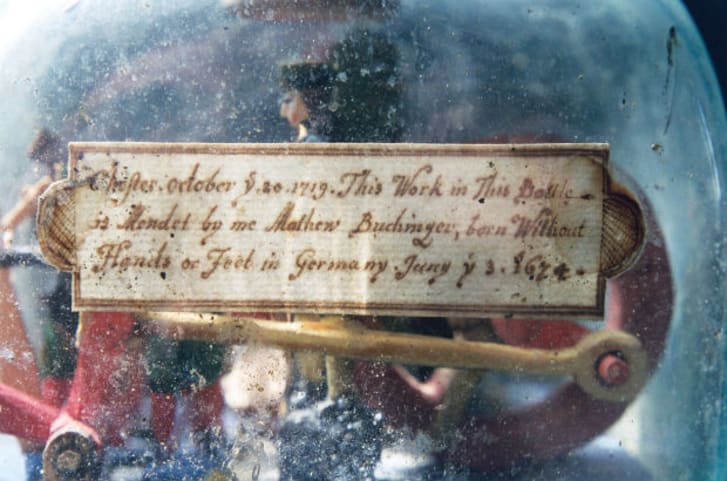 Chester. October ÿ. 20. 1719. This Work in This Bottle
is Mendet by me Mathew Buchinger, born Without
Hands or Feet in Germany Juny ÿ 3. 1674.